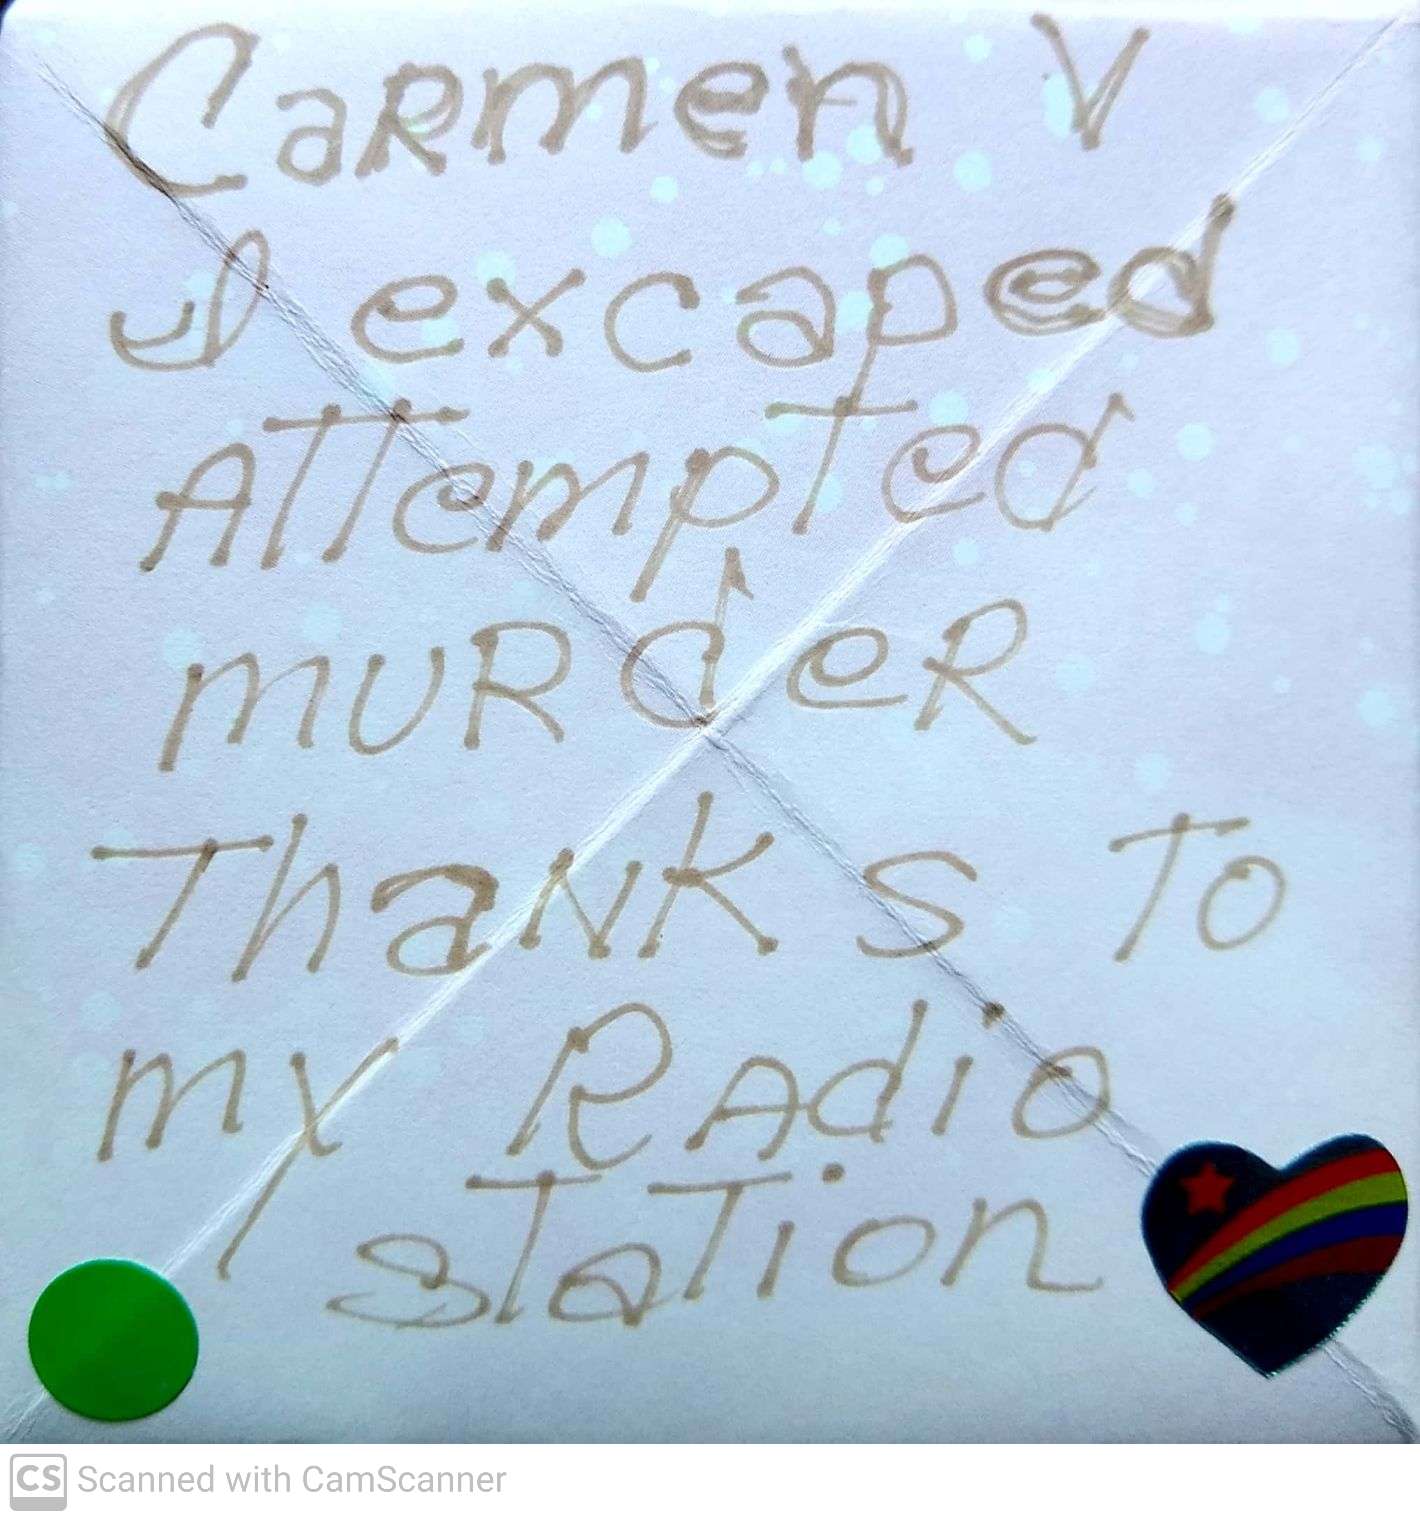 Carmen V
I excaped
Attempted
murder
Thanks To
my Radio
station
CS Scanned with CamScanner